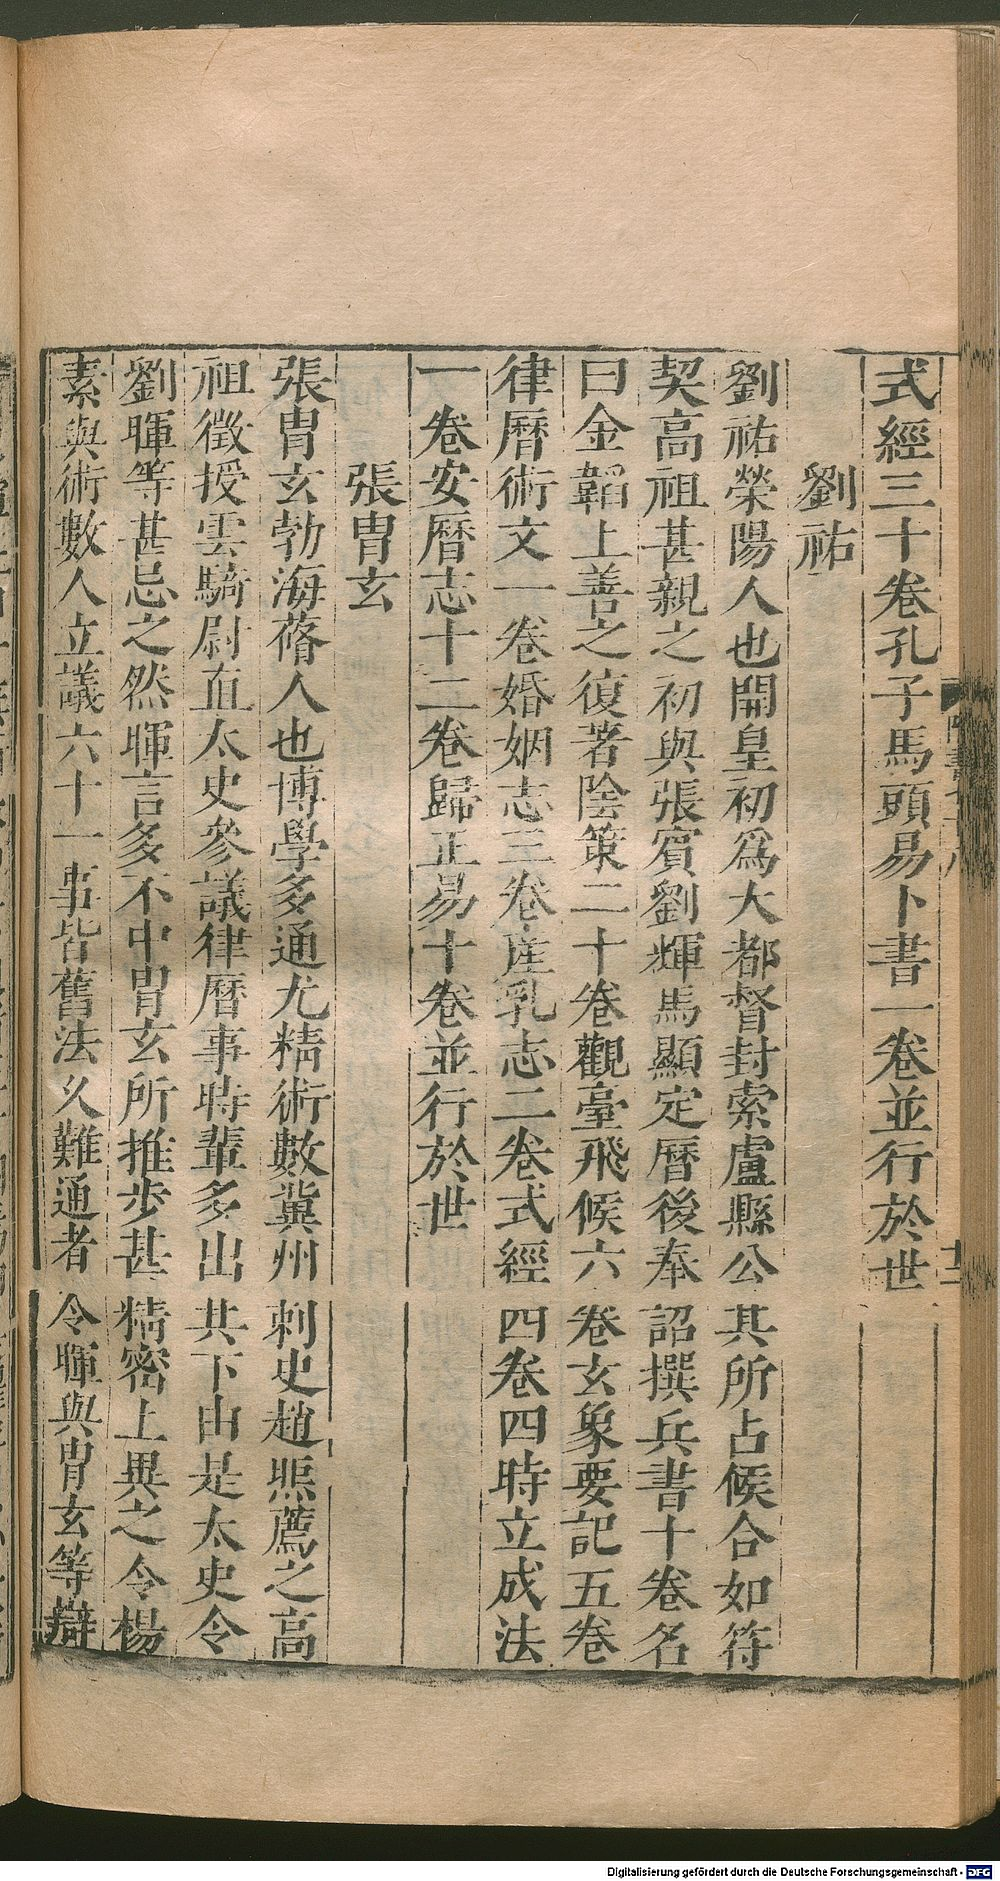 式經三十卷孔子馬頭易卜書一卷並行於世
劉祐
劉祐榮陽人也開皇初爲大都督封索盧縣公其所占候合如符
契高祖甚親之初與張賓劉輝馬顯定曆後奉詔撰兵書十卷名
曰金韜上善之復著陰策二十卷觀臺飛候六卷玄象要記五卷
律曆術文一卷婚姻志三卷産乳志二卷式經四卷四時立成法
一卷安曆志十二卷歸正易十卷並行於世
張胄玄
張胄玄勃海蓨人也博學多通尤精術數冀州刺史趙煚薦之高
祖徵授雲騎尉直太史參議律曆事時輩多出其下由是太史令
劉暉等甚忌之然暉言多不中胄玄所推步甚精密上異之令楊
素與術數人立議六十一事皆舊法久難通者令暉與胄玄等辯
十二
Digitalisierung gefördert durch die Deutsche Forschungsgemeinschaft - DFG